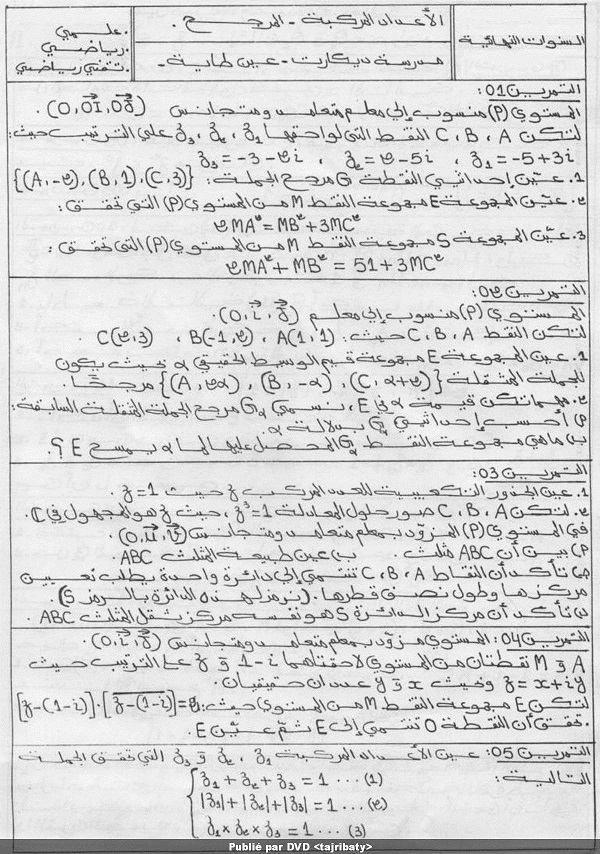 الأعداد المركبة - المرجح.
السنوات النهائية
مدرسة ديكارت - عين طاية -
• علمي
• رياضي
• تقني رياضي
التمرين 01:
المستوي (P) منسوب إلى معلم متعامد ومتجانس (O, OI, OJ).
لتكن A، B، C النقط التي لواحقها z₁، z₂، z₃ على الترتيب حيث:
z₁ = -5+3i ، z₂ = 2-5i ، z₃ = -3-2i
1. عيّن إحداثيي النقطة G مرجح الجملة: {(A,-2),(B,1),(C,3)}
2. عيّن المجموعة E مجموعة النقط M من المستوي (P) التي تحقق:
2MA² = MB² + 3MC²
3. عيّن المجموعة S مجموعة النقط M من المستوي (P) التي تحقق:
2MA² + MB² = 51 + 3MC²
التمرين 02:
المستوي (P) منسوب إلى معلم (O, i, j).
لتكن النقط A، B، C حيث: A(1,1) ، B(-1,2) ، C(2,3)
1. عين المجموعة E مجموعة قيم الوسيط الحقيقي α بحيث يكون
للجملة المثقلة {(A,2α), (B,-α), (C,α+2)} مرجحًا.
2. مهما تكن قيمة α في E، نسمي Gα مرجح الجملة المثقلة السابقة:
أ) أحسب إحداثيي Gα بدلالة α.
ب) ماهي مجموعة النقط Gα المحصل عليها لما α يمسح E ؟
التمرين 03:
1. عين الجذور التكعيبية للعدد المركب z حيث z=1.
2. لتكن A، B، C صور حلول المعادلة z³=1، حيث z هو المجهول في ℂ.
في المستوي (P) المزود بمعلم متعامد ومتجانس (O, u, v)
أ) بين أن ABC مثلث. ب) عين طبيعة المثلث ABC.
ج) تأكد أن النقاط A، B، C تنتمي إلى دائرة واحدة يطلب تعيين
مركزها وطول نصف قطرها. (نرمز لهذه الدائرة بالرمز S)
د) تأكد أن مركز الدائرة S هو نفسه مركز ثقل المثلث ABC.
التمرين 04: المستوي مزود بمعلم متعامد ومتجانس (O, i, j).
A و M نقطتان من المستوي لاحقتاهما 1-i و z على الترتيب حيث
z = x+iy وحيث x و y عددان حقيقيان.
لتكن E مجموعة النقط M من المستوي حيث: [z-(1-i)]·[z̅-̅(̅1̅-̅i̅)̅]=2
. تحقق أن النقطة O تنتمي إلى E ثم عيّن E.
التمرين 05: عين الأعداد المركبة z₁، z₂ و z₃ التي تحقق الجملة
التالية:
z₁ + z₂ + z₃ = 1 ... (1)
|z₁|+|z₂|+|z₃| = 1 ... (2)
z₁ × z₂ × z₃ = 1 ... (3)
Publié par DVD <tajribaty>